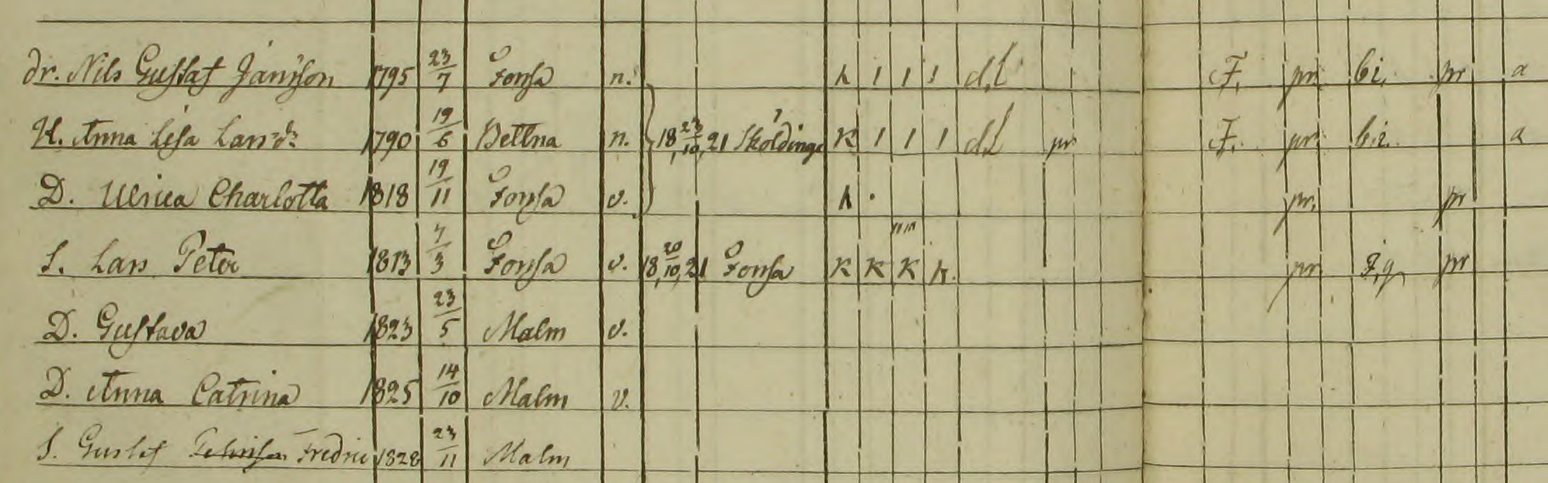 dr. Nils Gustaf Jansson 1795 23/7 Forssa n. k 1 1 1 d.l F. pr. bi. pr a
H. Anna Lisa Larsdr 1790 19/6 Bettna n. 18 23/10, 21 Sköldinge k 1 1 1 d.l pr F. pr. b.i. a
D. Ulrica Charlotta 1818 19/11 Forssa v. k pr. pr
S. Lars Peter 1813 7/3 Forssa v. 18 20/10, 21 Forssa k k k k. pr pr
D. Gustava 1823 23/5 Malm v.
D. Anna Catrina 1825 14/10 Malm v.
S. Gustaf Fredric 1828 23/11 Malm